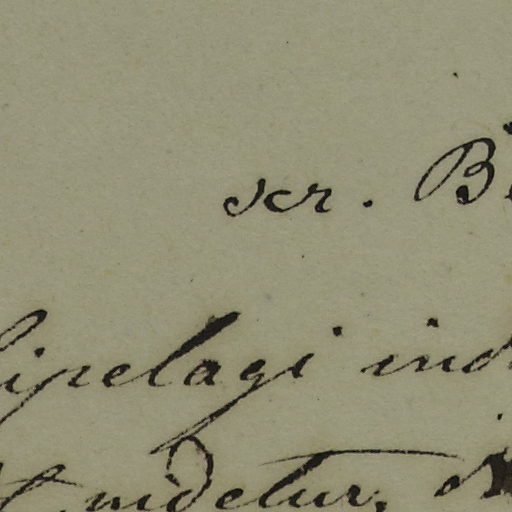 scr. B
hipelagi ind
videtur,